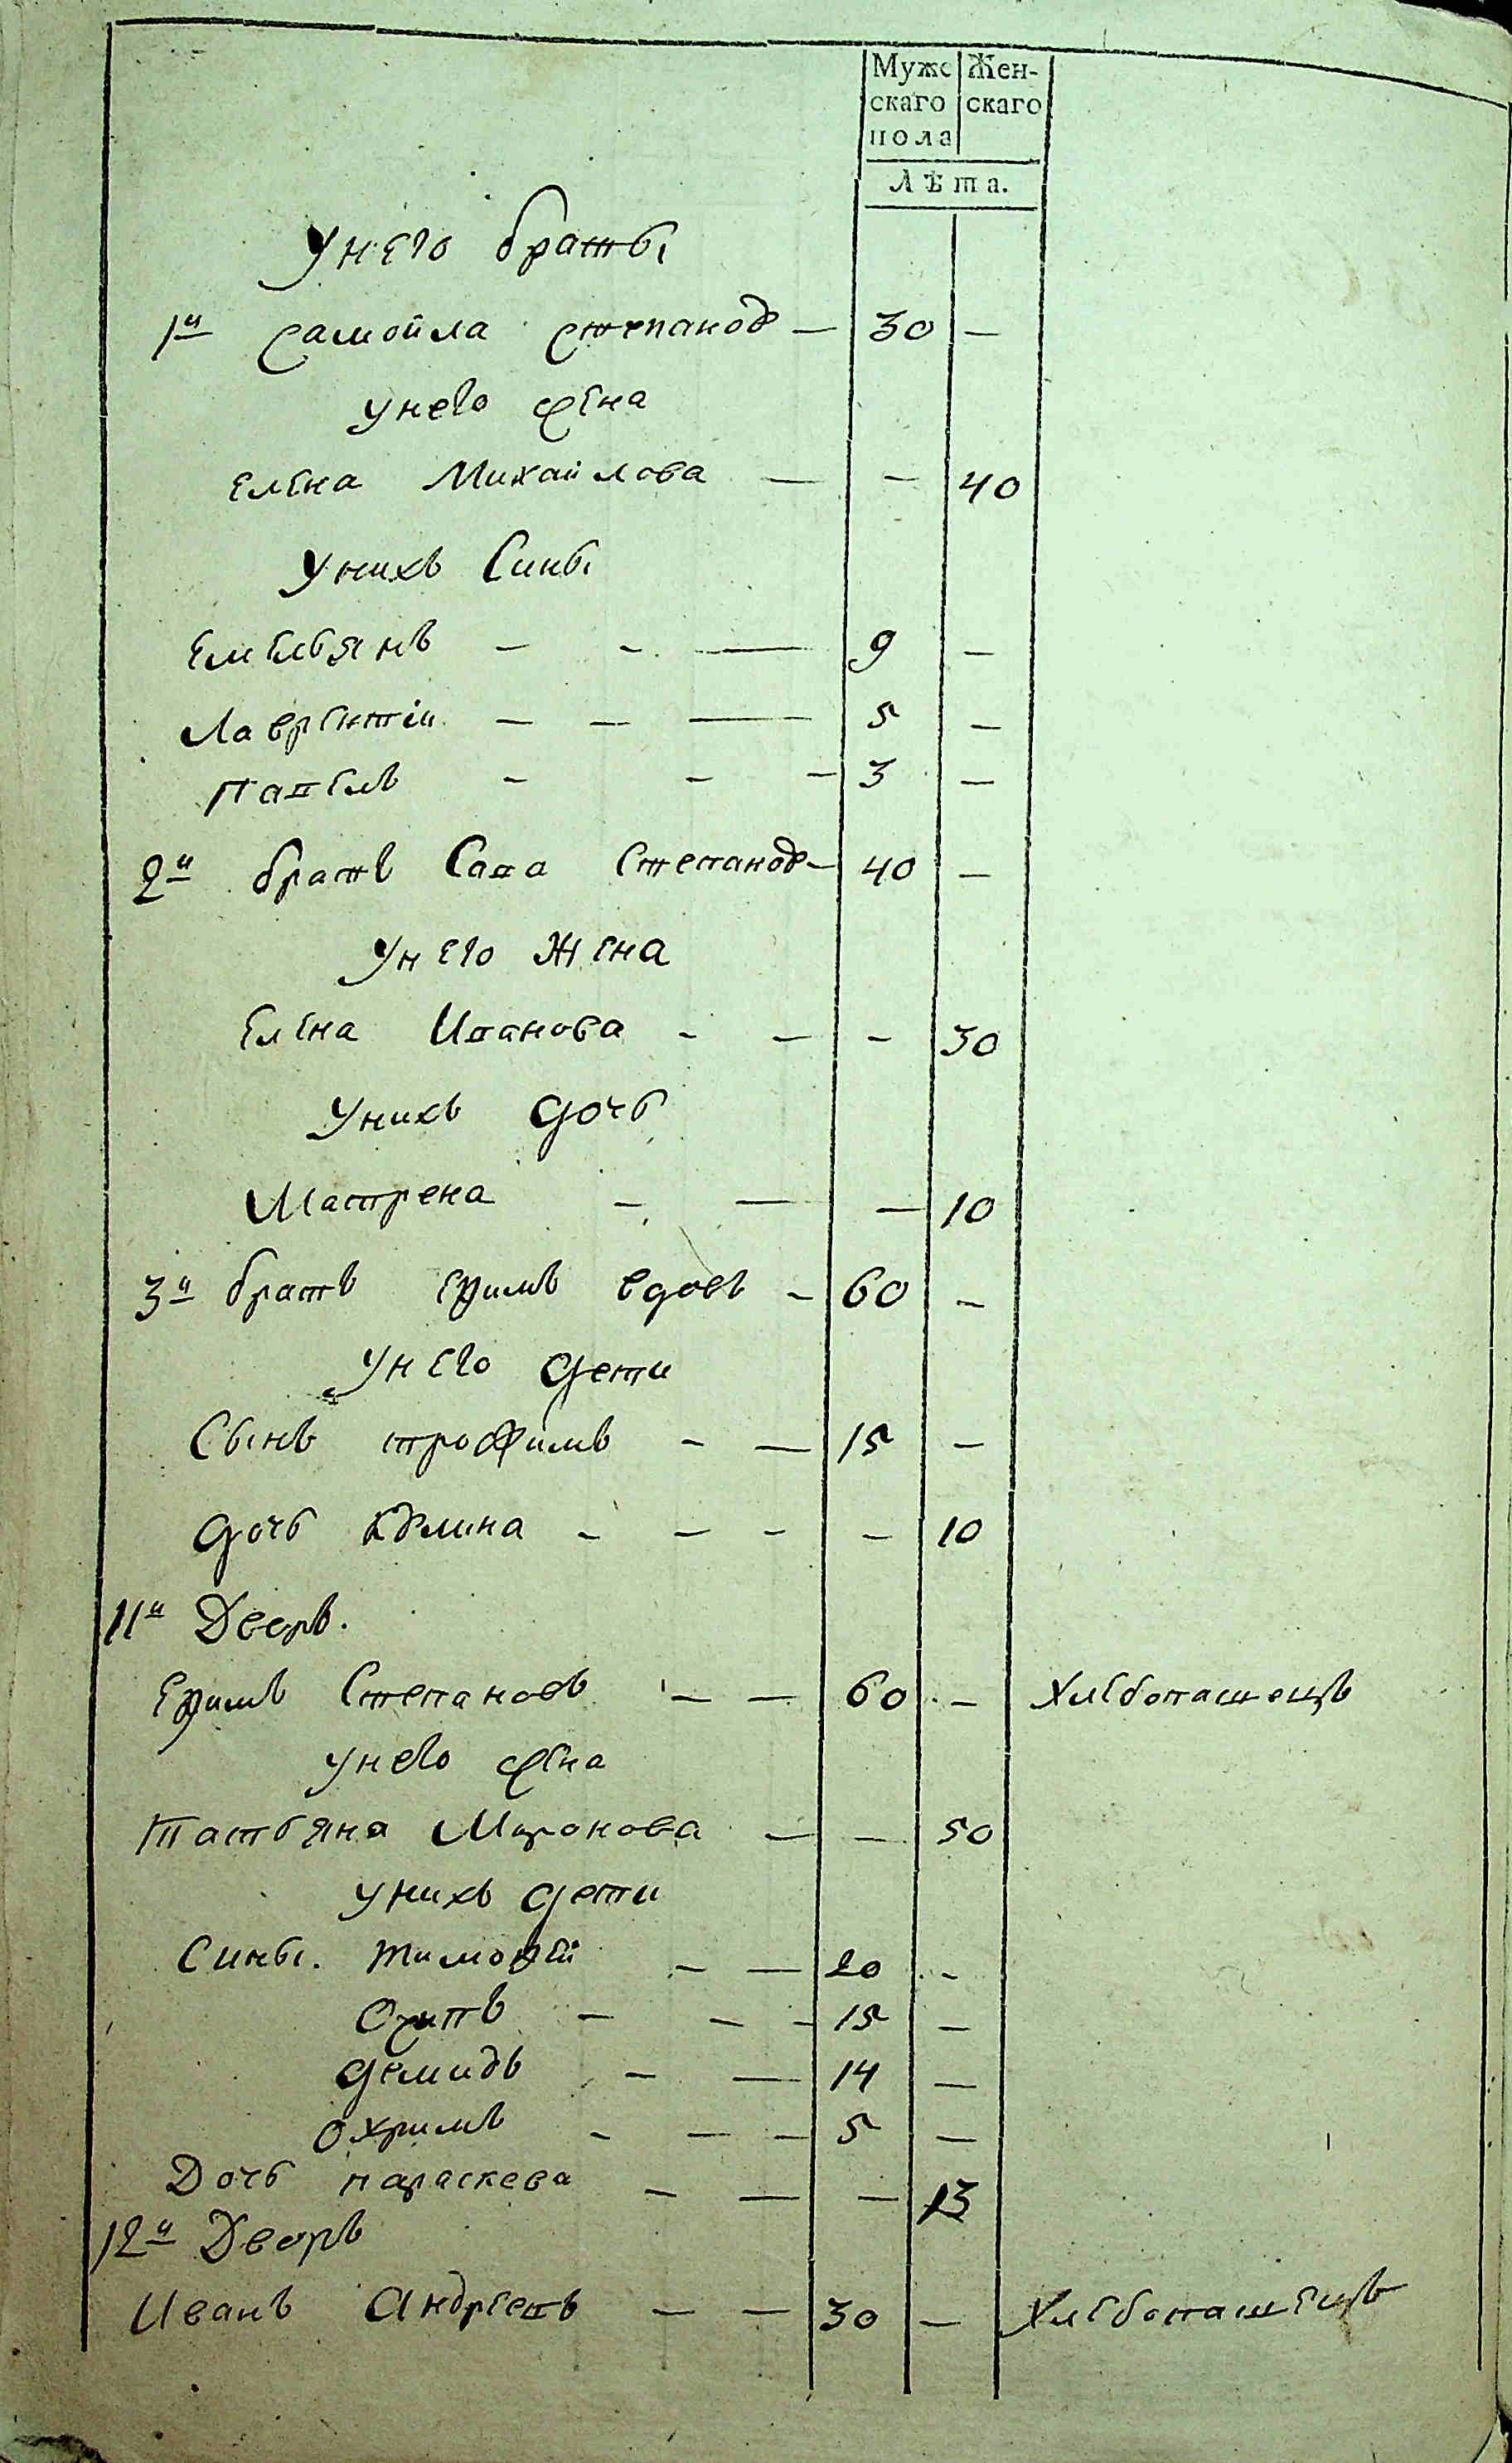 Мужс Жен-
скаго скаго
пола
Лѣта.
У него братьı
1й Самойла Степанов — 30 —
у него жена
Елена Михайлова — — 40
У нихъ Сины
Емельянъ — - — 9 —
Лаврентій — — — 5 —
Павелъ - - - 3 —
2й братъ Сава Степанов — 40 —
У него Жена
Елена Иванова - — - 30
У нихъ дочь
Матрена - — — 10
3й братъ Ефимъ вдовъ - 60 -
У него дети
Сынъ трофимъ - — 15 —
дочь - — - — 10
11й Дворъ.
Ефимъ Степановъ — — 60 — Хлебопашецъ
У него жена
Татьяна Миронова — — 50
У нихъ дети
Сины. Тимофей - — 20 -
- — - 15 —
Демидъ - — 14 —
Охримъ - — - 5 —
Дочь параскева - — — 13
12й Дворъ
Иванъ Андреевъ — — 30 — Хлебопашецъ